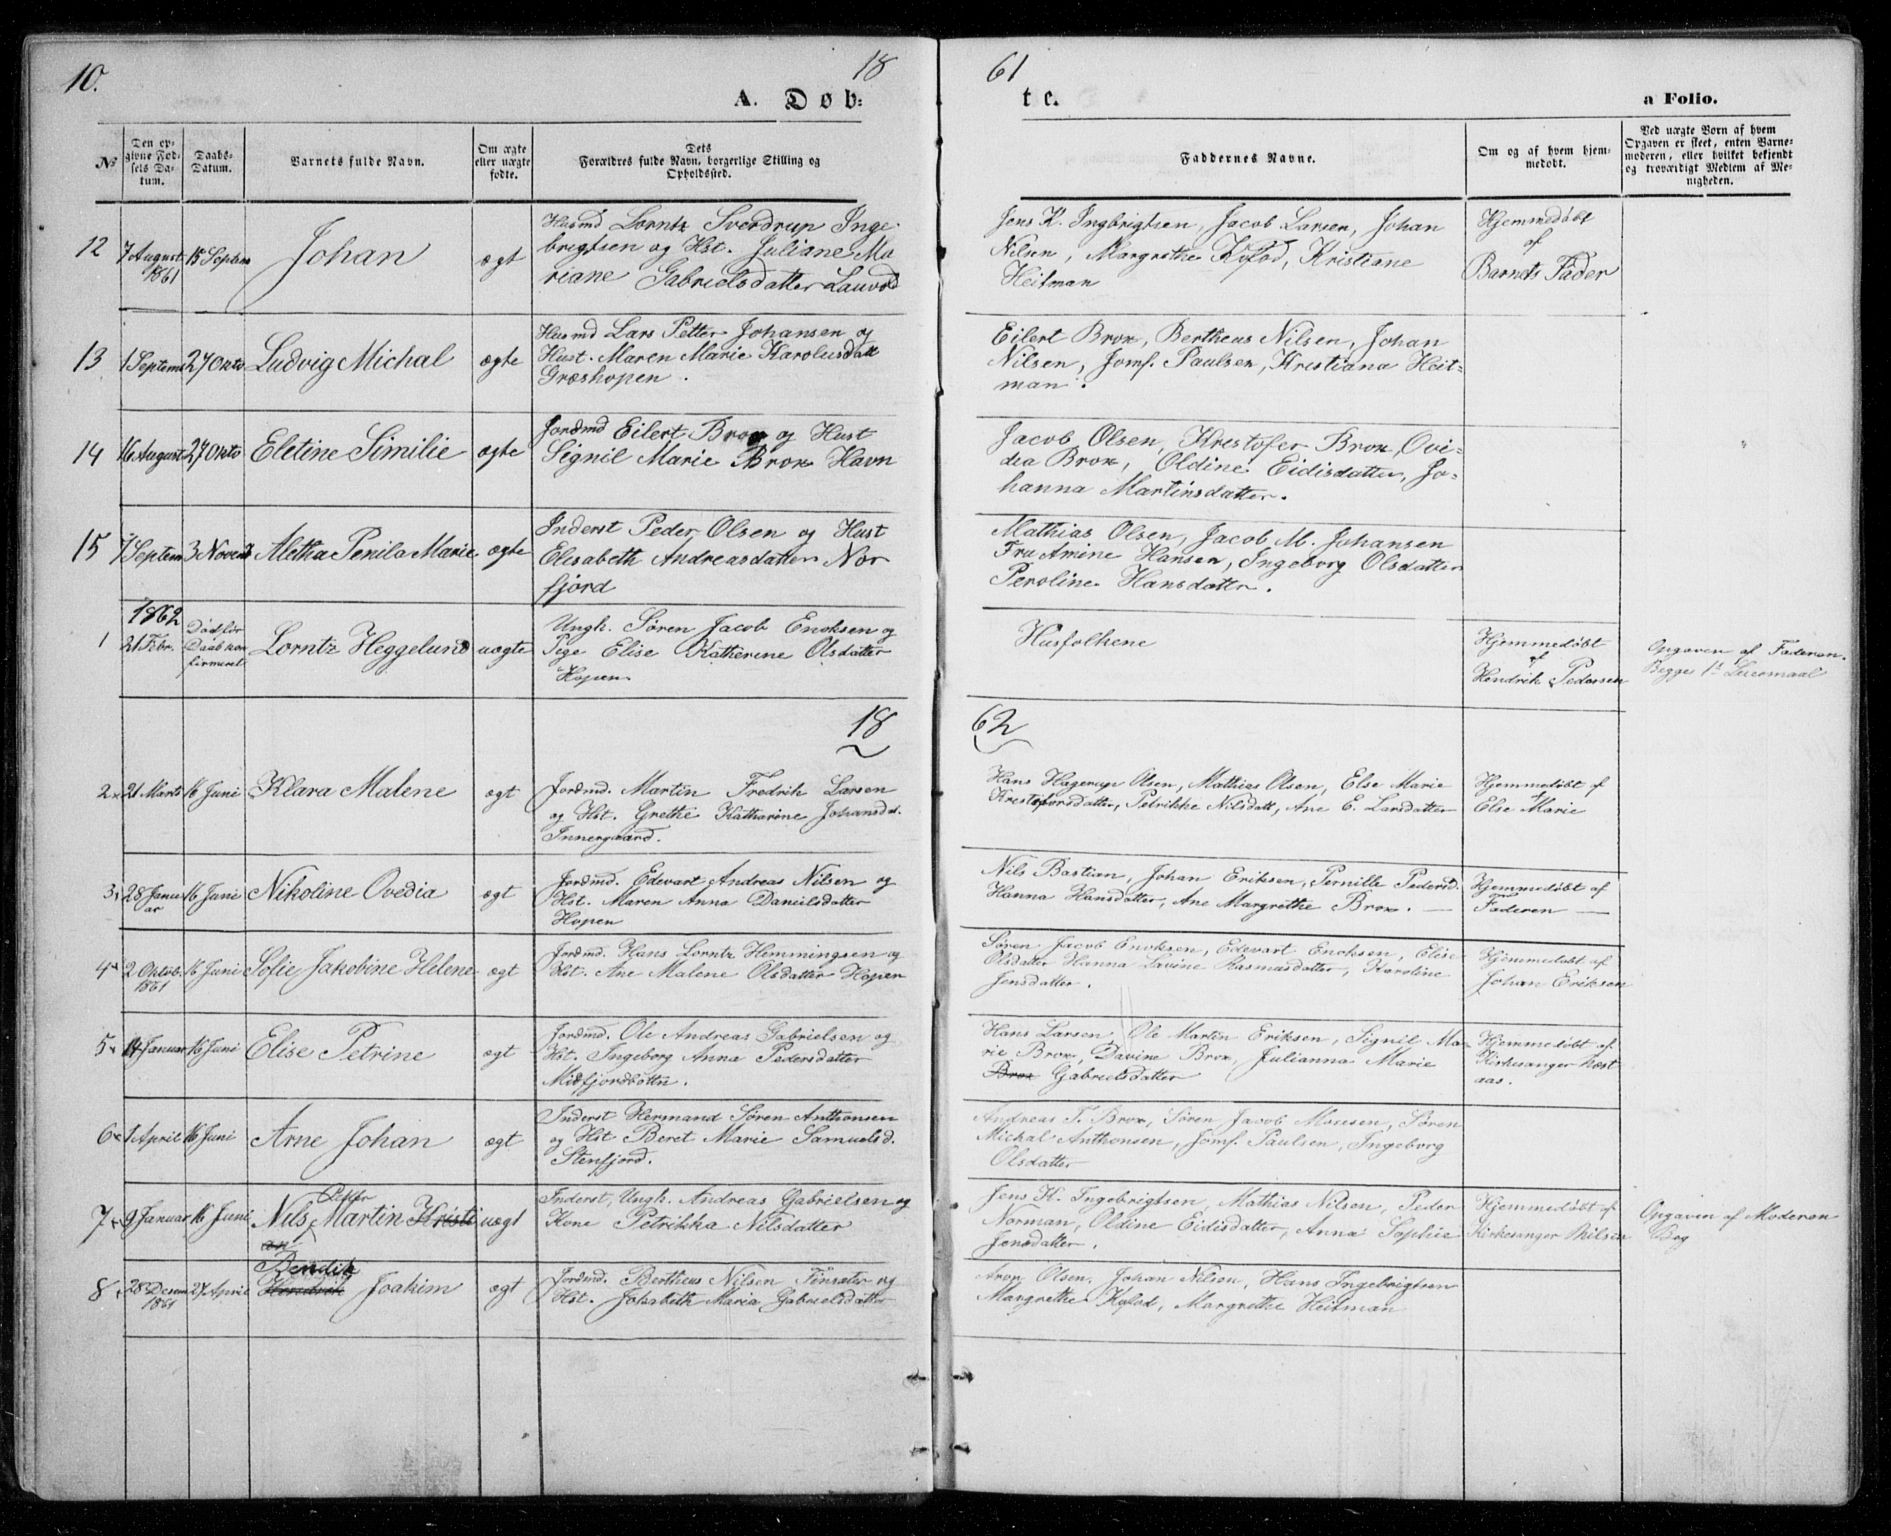 10.
18
61
A. Døb:
te.
a Folio.
No
Den op-
givne Fød-
sels Da-
tum.
Daabs-
Datum.
Barnets fulde Navn.
Om ægte
eller uægte
fødte.
Dets
Forældres fulde Navn, borgerlige Stilling og
Opholdssted.
Faddernes Navne.
Om og af hvem hjem-
medøbt.
Ved uægte Børn af hvem
Opgaven er skeet, enten Barne-
moderen, eller hvilket bekjendt
og troværdigt Medlem af Me-
nigheden.
12
7 August
1861
15 Septem
Johan
ægt
Husmd Lorntz Sverdrup Inge-
brigtsen og Hst. Juliane Ma
riane Gabrielsdatter Lauvod
Jens K. Ingbrigtsen, Jacob Larsen, Johan
Nilsen, Margrethe Kofod, Kristiane
Heitman
Hjemmedøbt
af
Barnets Fader
13
1 Septem
27 Okto
Ludvig Michal
ægte
Husmd Lars Petter Johansen og
Hust. Maren Marie Karolusdatt
Græshopen.
Eilert Brox, Bertheus Nilsen, Johan
Nilsen, Jomf. Paulsen, Kristiana Heit-
man.
14
16 August
27 Okto
Eletine Similie
ægte
Jordmd Eilert Brox og Hust
Signil Marie Brox Havn
Jacob Olsen, Krestofer Brox, Ovi-
dea Brox, Oldine Eidisdatter, Jo-
hanna Martinsdatter.
15
7 Septem
3 Novem
Aletha Penila Marie
ægte
Inderst Peder Olsen og Hust
Elesabeth Andreasdatter Nor
fjord
Mathias Olsen, Jacob M. Johansen
Fru Amine Hansen, Ingeborg Olsdatter
Peroline Hansdatter.
1862
1
21 Febr.
Død før
Daab kon
firmeret
Lorntz Heggelund
uægte
Ungk. Søren Jacob Enoksen og
Pige Elise Katherine Olsdatter
Hopen
Husfolkene
Hjemmedøbt
af
Hendrik Pedersen
Opgaven af Faderen.
Begge 1ste Leiermaal
18
62
2
21 Marts
16 Juni
Klara Malene
ægt
Jordmd. Martin Fredrik Larsen
og Hst. Grethe Katharine Johansdat.
Innergaard.
Hans Hagerup Olsen, Mathias Olsen, Else Marie
Krestofersdatter, Petrikke Nilsdatt, Ane E. Larsdatter
Hjemmedøbt af
Else Marie
3
28 Janu
ar
16 Juni
Nikoline Ovedia
ægt
Jordmd. Edevart Andreas Nilsen og
Hst. Maren Anna Danielsdatter
Hopen
Nils Bastian, Johan Eriksen, Pernille Pedersd.
Hanna Hansdatter, Ane Margrethe Brox. —
Hjemmedøbt af
Faderen —
4
2 Oktob.
1861
16 Juni
Sofie Jakobine Helene
ægt
Jordmd. Hans Lorntz Hemmingsen og
Hst. Ane Malene Olsdatter Hopen
Søren Jacob Enoksen, Edevart Enoksen, Elise
Olsdatter Hanna Lavine Rasmusdatter, Karoline
Jensdatter.
Hjemmedøbt af
Johan Eriksen
5
14 Januar
16 Juni
Elise Petrine
ægt
Jordmd. Ole Andreas Gabrielsen og
Hst. Ingeborg Anna Pedersdatter
Midfjordbotn.
Hans Larsen, Ole Martin Eriksen, Signil Ma-
rie Brox, Davine Brox, Julianna Marie
Brox Gabrielsdatter
Hjemmedøbt af
Kirkesanger Næst
aas.
6
1 April
16 Juni
Arne Johan
ægt
Inderst Hermand Søren Anthonsen
og Hst Beret Marie Samuelsd.
Stenfjord.
Andreas T. Brox, Søren Jacob Mousen, Søren
Michal Anthonsen, Jomf. Paulsen, Ingeborg
Olsdatter
7
9 Januar
16 Juni
Petter
Nils Martin Kristi
an
uægt
Inderst, Ungk. Andreas Gabrielsen og
Kone Petrikka Nilsdatter
Jens H. Ingebrigtsen, Mathias Nilsen, Peder
Norman, Oldine Eidisdatter, Anna Sophie
Jensdatter.
Hjemmedøbt af
Kirkesanger Nilsen
Opgaven af Moderen
Beg
8
28 Decem
1861
27 April
Bendik
Joakim
ægt
Jordmd. Bertheus Nilsen Finsæter og
Hst. Johsbeth Maria Gabrielsdatter
Aron Olsen, Johan Nilsen, Hans Ingebrigtsen
Margrethe Kofod, Margrethe Heitman